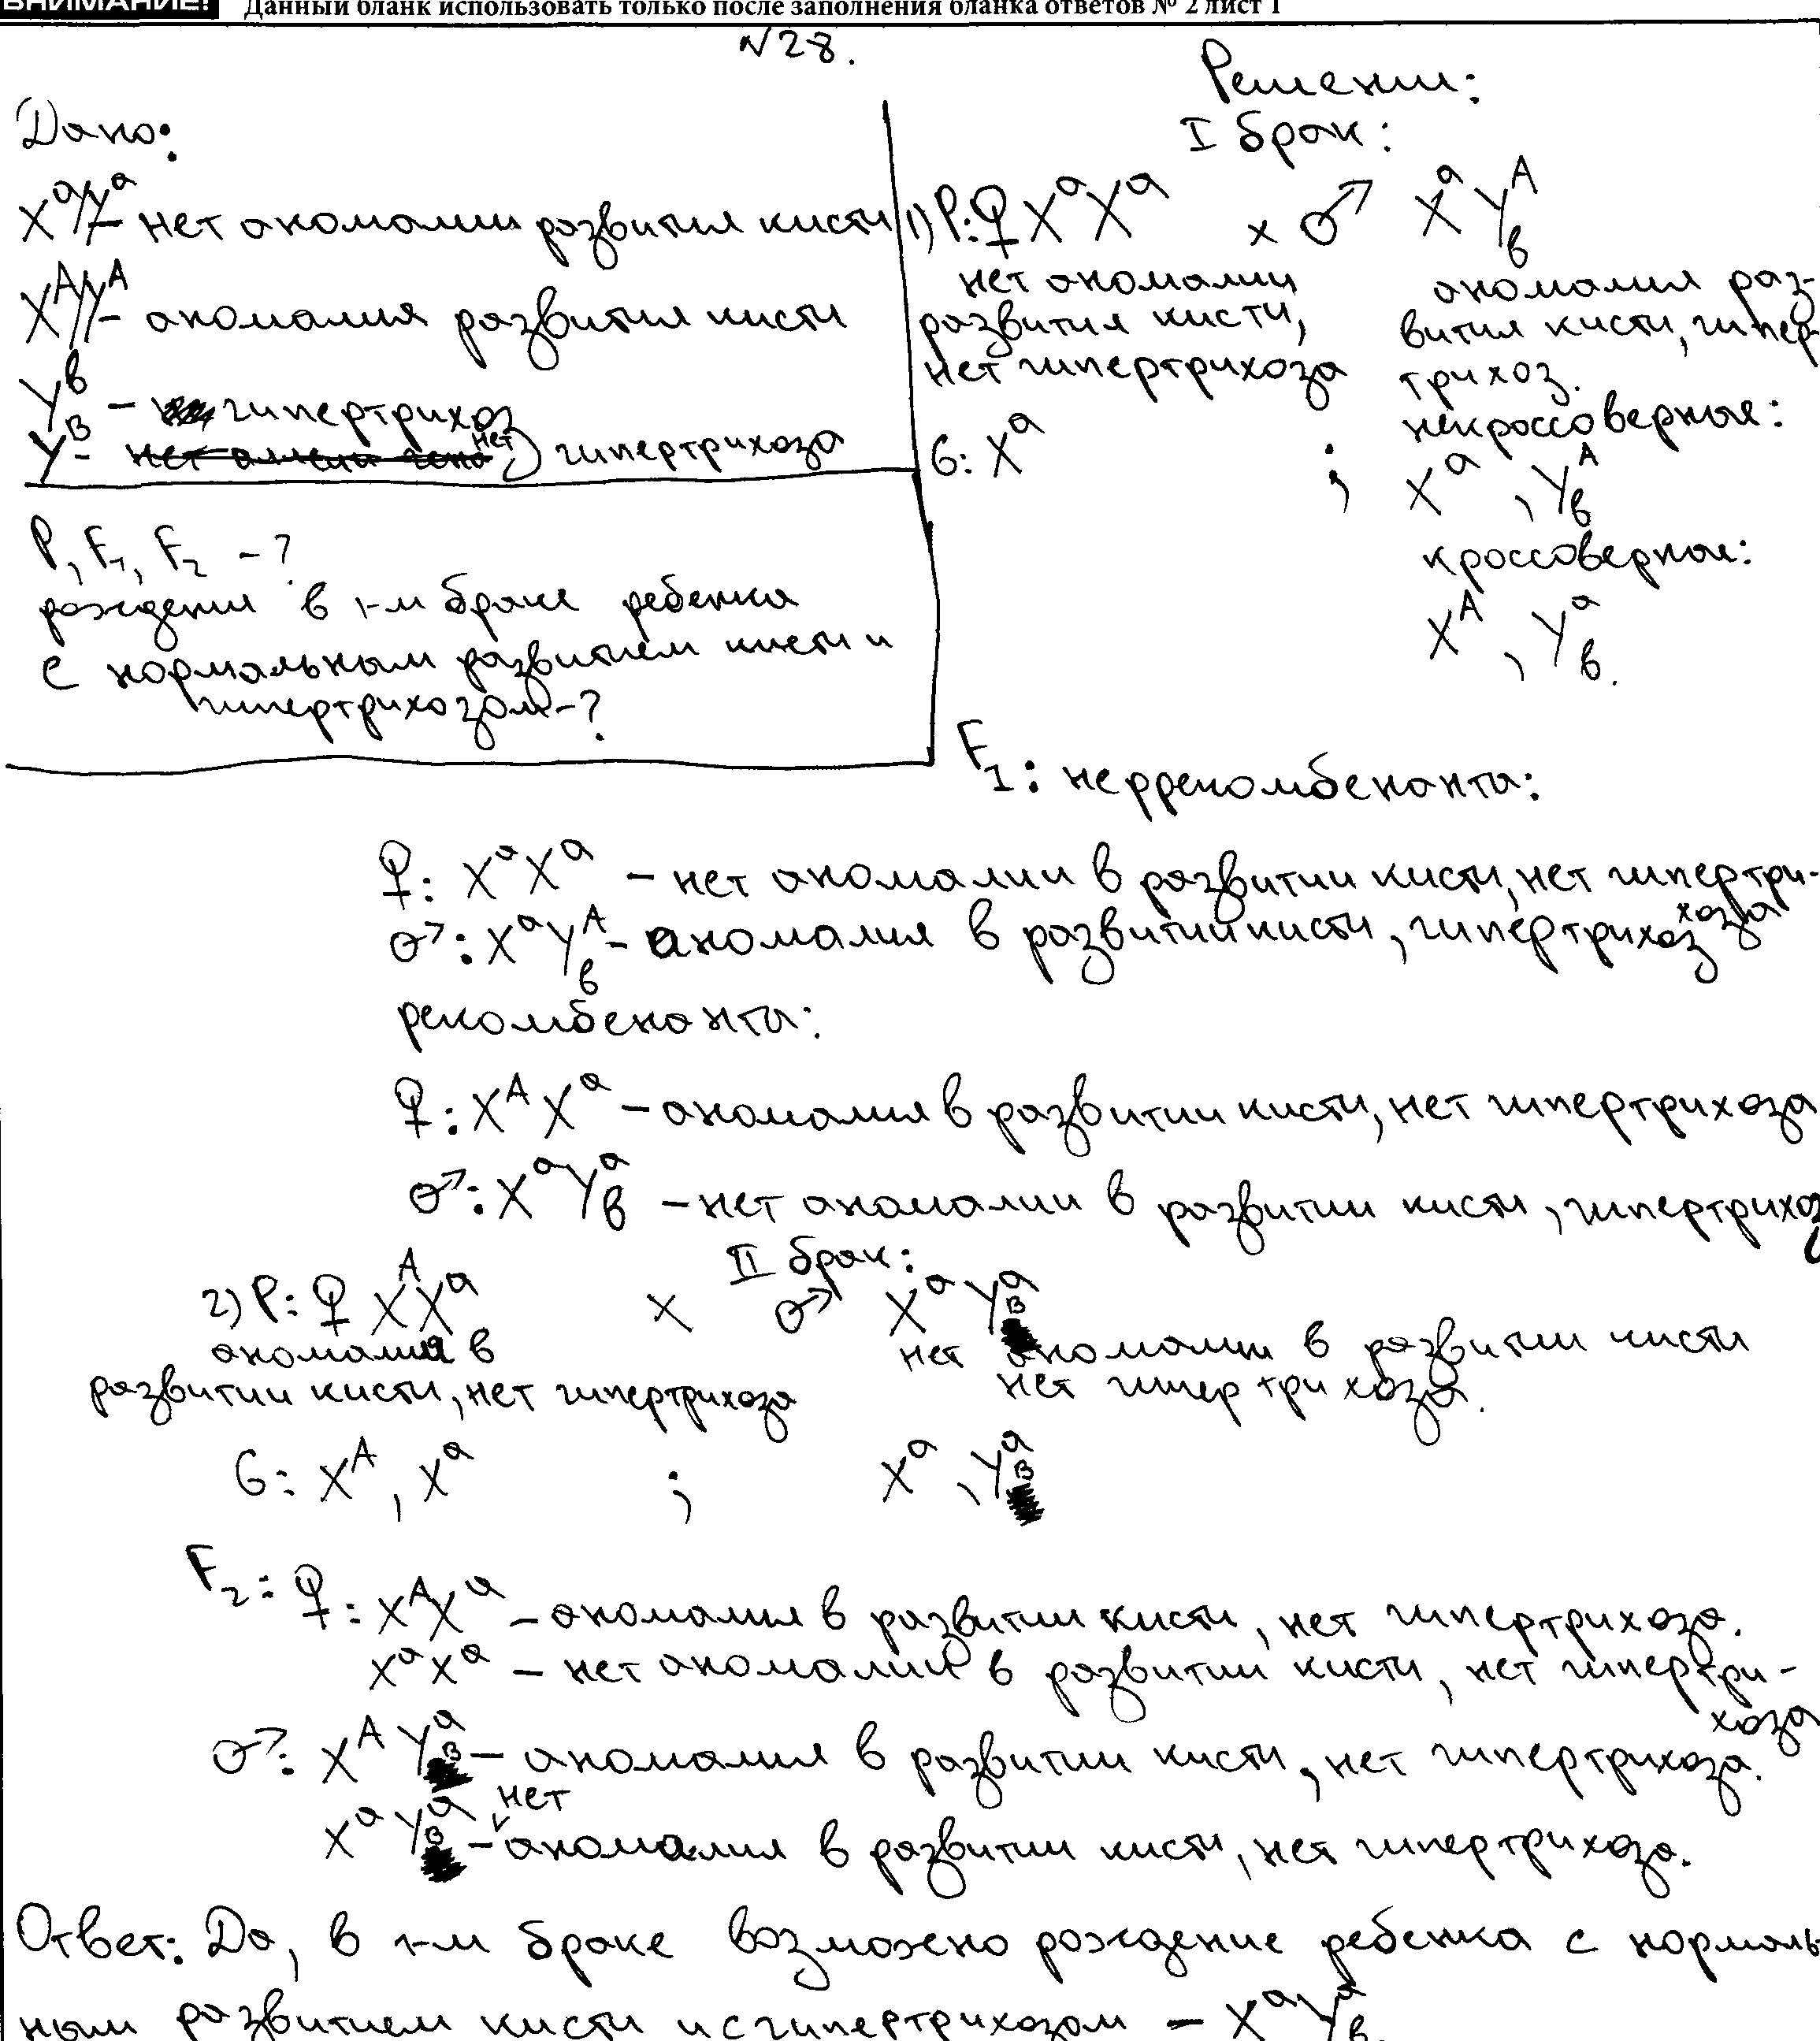 ВНИМАНИЕ! Данный бланк использовать только после заполнения бланка ответов № 2 лист 1
№28.
Дано:
Xᵃ/Yᵃ - нет аномалии развития кисти
Xᴬ/Yᴬ - аномалия развития кисти
Yᵇ - гипертрихоз
Yᴮ - нет гипертрихоза
P, F₁, F₂ - ?
рождения в 1-м браке ребенка
с нормальным развитием кисти и
гипертрихозом - ?
Решении:
I брак:
1) P: ♀ XᵃXᵃ x ♂ XᵃYᴬb
нет аномалии развития кисти, нет гипертрихоза
аномалия развития кисти, гипертрихоз.
G: Xᵃ ;
некроссоверные:
Xᵃ, Yᴬb
кроссоверные:
Xᴬ, Yᵃb.
F₁: неррекомбенанты:
♀: XᵃXᵃ - нет аномалии в развитии кисти, нет гипертрихоза
♂: XᵃYᴬb - аномалия в развитии кисти, гипертрихоз
рекомбенанты:
♀: XᴬXᵃ - аномалия в развитии кисти, нет гипертрихоза
♂: XᵃYᵃb - нет аномалии в развитии кисти, гипертрихоз
II брак:
2) P: ♀ XᴬXᵃ x ♂ XᵃYᵃB
аномалия в развитии кисти, нет гипертрихоза
нет аномалии в развитии кисти
нет гипертрихоза.
G: Xᴬ, Xᵃ ; Xᵃ, YᵃB
F₂: ♀: XᴬXᵃ - аномалия в развитии кисти, нет гипертрихоза.
XᵃXᵃ - нет аномалии в развитии кисти, нет гипертрихоза
♂: XᴬYᵃB - аномалия в развитии кисти, нет гипертрихоза.
XᵃYᵃB - нет аномалия в развитии кисти, нет гипертрихоза.
Ответ: Да, в 1-м браке возможно рождение ребенка с нормаль-
ным развитием кисти и с гипертрихозом - XᵃYᵃb.